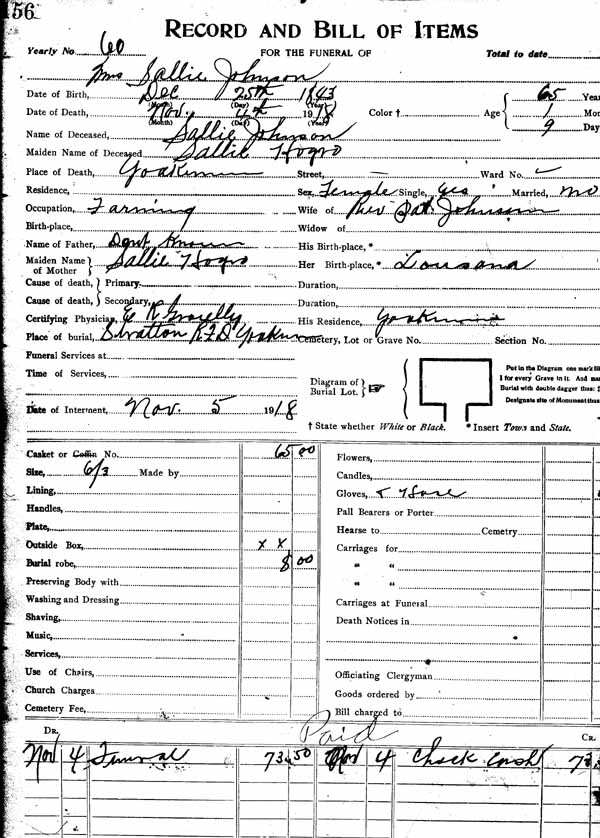 56
RECORD AND BILL OF ITEMS
Yearly No. 60 FOR THE FUNERAL OF Total to date
Mrs Sallie Johnson
Date of Birth, Dec 25th 1843 65 Years
(Month) (Day) (Year)
Date of Death, Nov. 4th 1918 Color † Age 1 Mon
(Month) (Day) (Year)
Name of Deceased, Sallie Johnson 9 Day
Maiden Name of Deceased Sallie
Place of Death, Yoakum Street, Ward No.
Residence, Sex, Female Single, yes Married, no
Occupation, Farming Wife of Rev Johnson
Birth-place, Widow of
Name of Father, Dont Know His Birth-place, *
Maiden Name of Mother Sallie Her Birth-place, * Lousana
Cause of death, Primary. Duration,
Cause of death, Secondary, Duration,
Certifying Physician, His Residence, Yoakum
Place of burial, Stratton RFD Yoakum Cemetery, Lot or Grave No. Section No.
Funeral Services at
Time of Services,
Diagram of Burial Lot. ☞
Put in the Diagram one mark
I for every Grave in it. And
Burial with double dagger thus: ‡
Designate site of Monument thus
Date of Interment, Nov. 5 1918
† State whether White or Black. * Insert Town and State.
Casket or Coffin No. 65 00
Size, 6/3 Made by
Lining,
Handles,
Plate,
Outside Box, x x
Burial robe, 8 00
Preserving Body with
Washing and Dressing
Shaving,
Music,
Services,
Use of Chairs,
Church Charges
Cemetery Fee,
Flowers,
Candles,
Gloves, & Hose
Pall Bearers or Porter
Hearse to Cemetry
Carriages for
“ “
“ “
Carriages at Funeral
Death Notices in
Officiating Clergyman
Goods ordered by
Bill charged to
DR. Paid CR.
Nov 4 Funeral 73 50 Nov 4 Check Cash 73